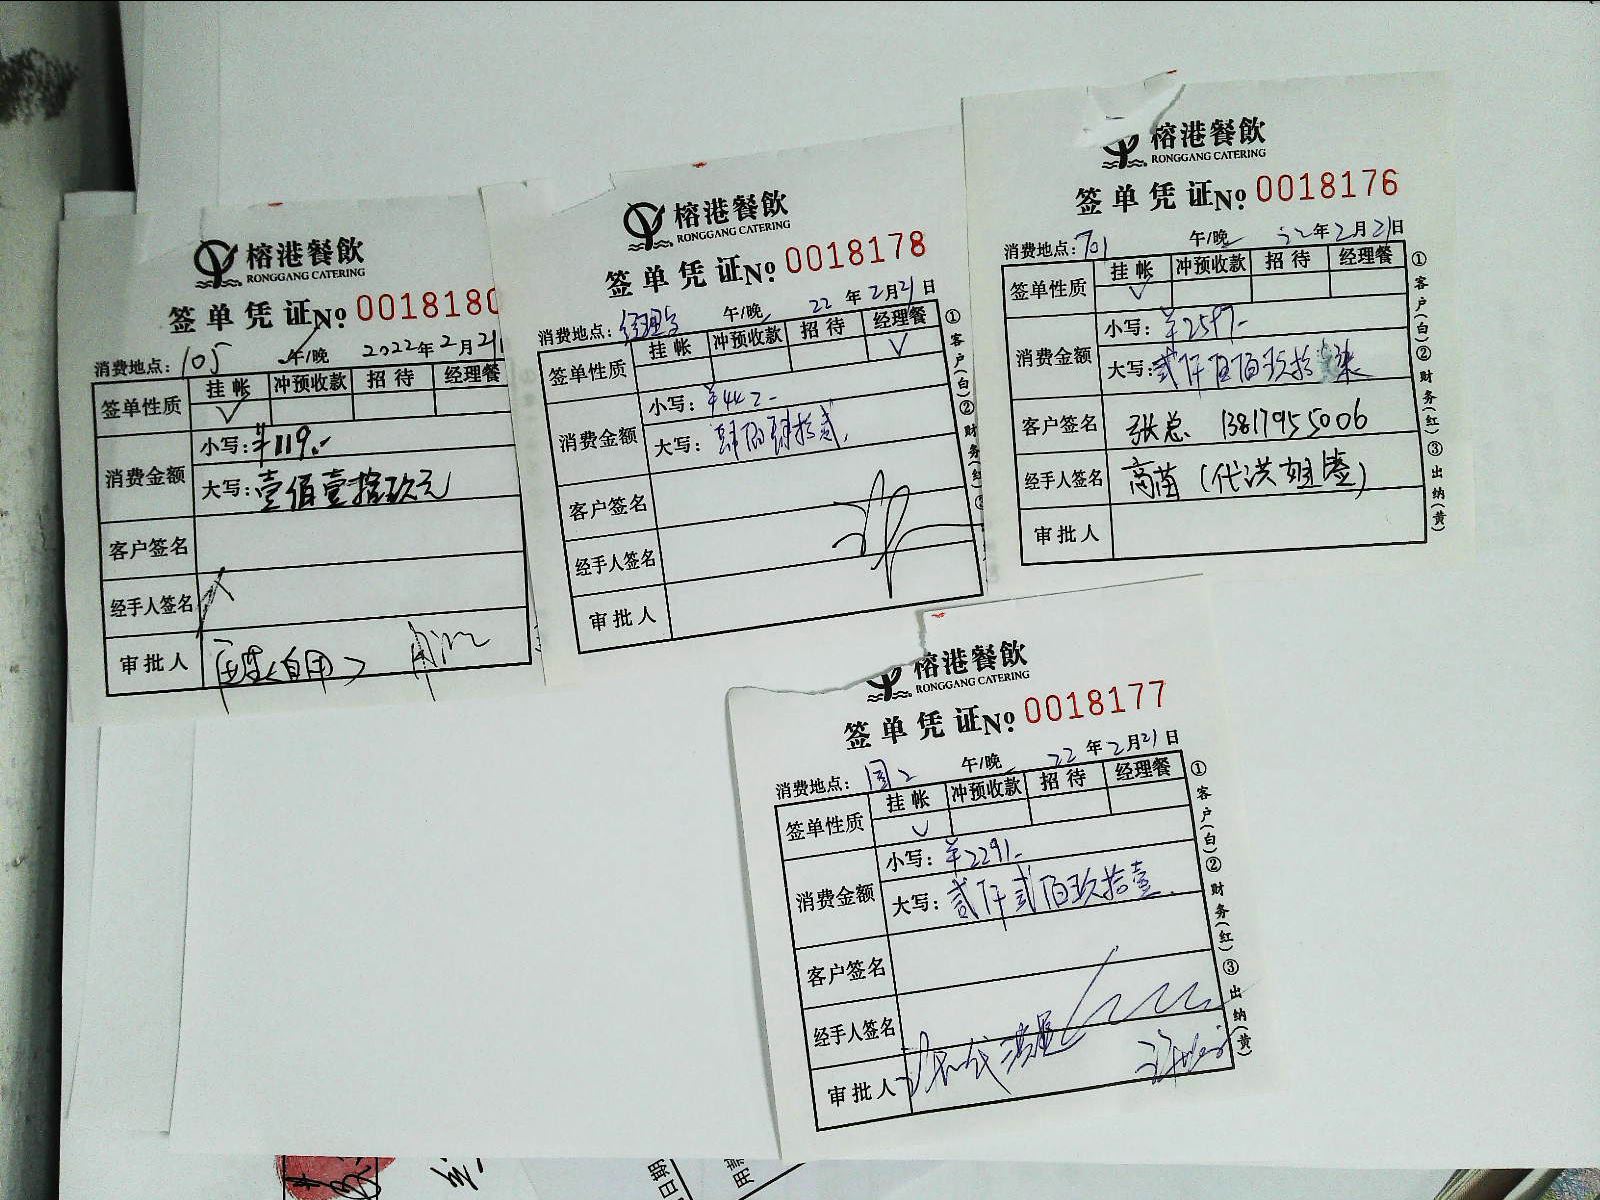 榕港餐飲
RONGGANG CATERING
签单凭证 No. 0018180
消费地点: 105 午/晚 2022年2月21
签单性质 挂帐 冲预收款 招待 经理餐
✓
消费金额 小写: ¥119.-
大写: 壹佰壹拾玖元
客户签名
经手人签名
审批人 (自用)
榕港餐飲
RONGGANG CATERING
签单凭证 No. 0018178
消费地点: 经理 午/晚 22年2月21日
签单性质 挂帐 冲预收款 招待 经理餐
✓
消费金额 小写: ¥442-
大写: 肆佰肆拾贰
客户签名
经手人签名
审批人
①客户(白)②财务(红)
榕港餐飲
RONGGANG CATERING
签单凭证 No. 0018176
消费地点: 701 午/晚 22年2月21日
签单性质 挂帐 冲预收款 招待 经理餐
✓
消费金额 小写: ¥2597-
大写: 贰仟伍佰玖拾柒
客户签名 张总 13817955006
经手人签名 高苗(代洪姐签)
审批人
①客户(白)②财务(红)③出纳(黄)
榕港餐飲
RONGGANG CATERING
签单凭证 No. 0018177
消费地点: 国2 午/晚 22年2月21日
签单性质 挂帐 冲预收款 招待 经理餐
✓
消费金额 小写: ¥2291-
大写: 贰仟贰佰玖拾壹
客户签名
经手人签名
审批人
①客户(白)②财务(红)③出纳(黄)
日期